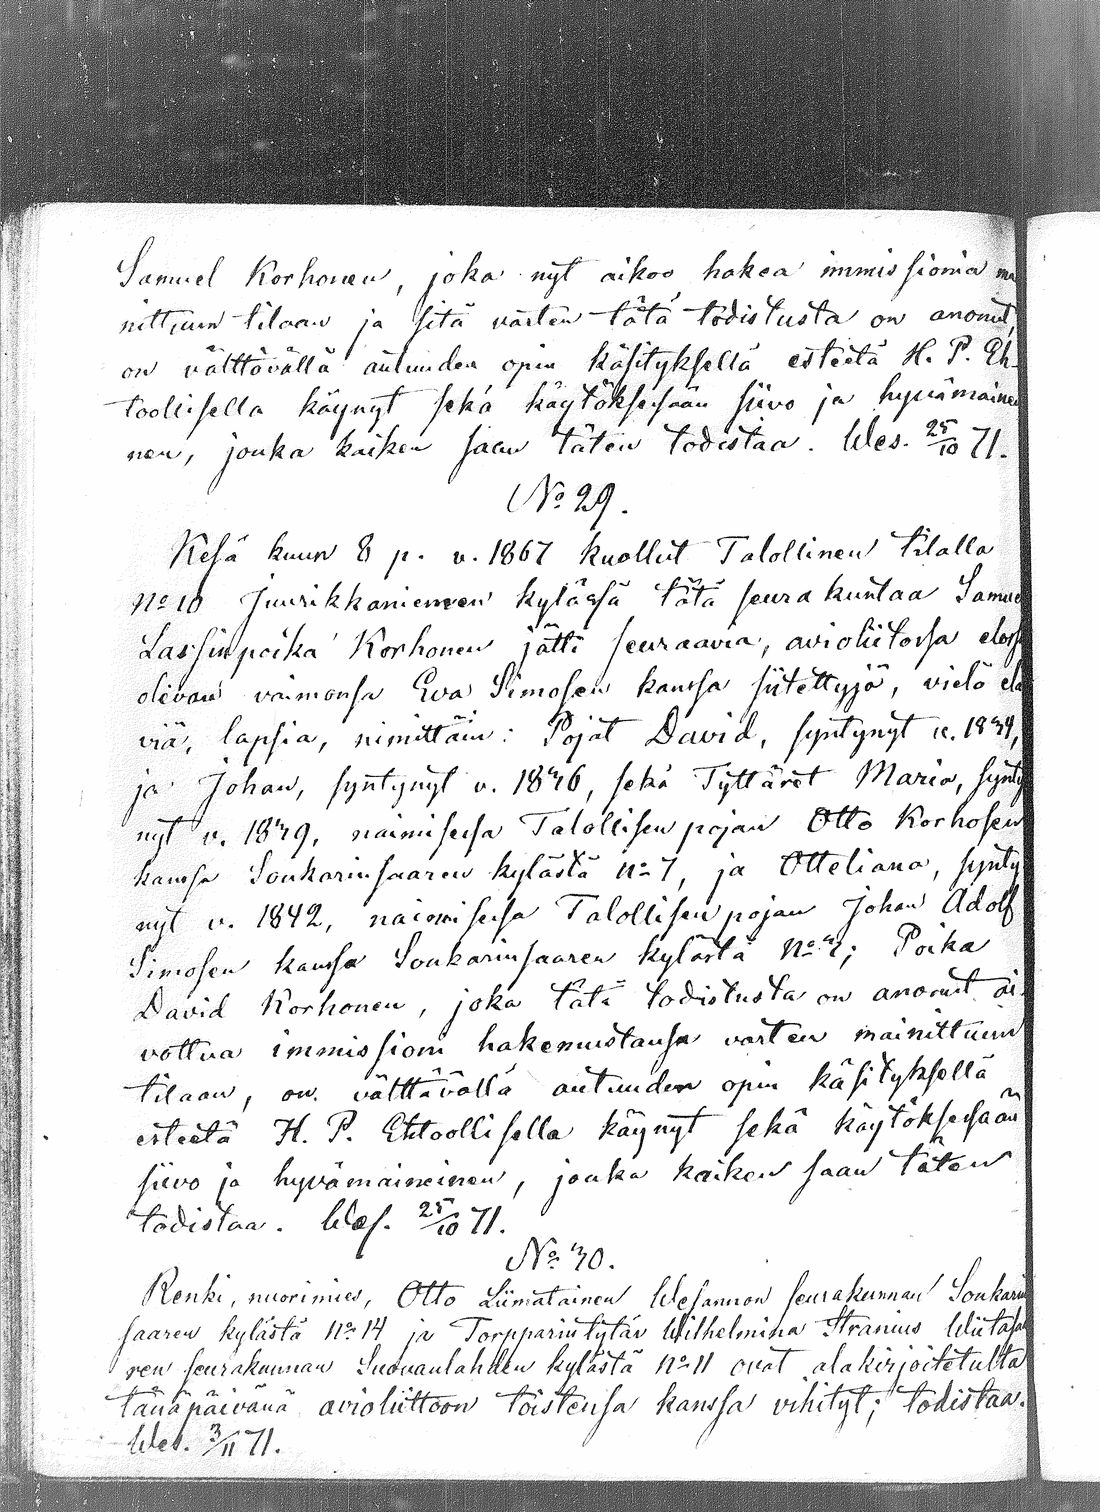 Samuel Korhonen, joka nyt aikoo hakea immissionia mai
nittuun tilaan ja sitä varten tätä todistusta on anonut,
on välttävällä autuuden opin käsityksellä esteetä H. P. Eh-
toollisella käynyt sekä käytöksessään siivo ja hyvämainei
nen, jonka kaiken saan täten todistaa. Wes. 25/10 71.
No 29.
Kesä kuun 8 p. v. 1867 kuollut Talollinen tilalla
No 10 Juurikkaniemen kylässä tätä seurakuntaa Samuel
Lassinpoika Korhonen jätti seuraavia, avioliitossa elossa
olevan vaimonsa Eva Simosen kanssa siitettyjä, vielä elä
viä, lapsia, nimittäin: Pojat David, syntynyt v. 1834,
ja Johan, syntynyt v. 1836, sekä Tyttäret Maria, synty
nyt v. 1839, naimisessa Talollisen pojan Otto Korhosen
kanssa Sonkarinsaaren kylästä No 7, ja Otteliana, synty
nyt v. 1842, naimisessa Talollisen pojan Johan Adolf
Simosen kanssa Sonkarinsaaren kylästä No 3; Poika
David Korhonen, joka tätä todistusta on anonut ai-
vottua immissioni hakemustansa varten mainittuun
tilaan, on välttävällä autuuden opin käsityksellä
esteetä H. P. Ehtoollisella käynyt sekä käytöksessään
siivo ja hyvämaineinen, jonka kaiken saan täten
todistaa. Wes. 25/10 71.
No 30.
Renki, nuorimies, Otto Liimatainen Wesannon seurakunnan Sonkarin
saaren kylästä No 14 ja Torpparintytär Wilhelmina Stranius Wiitasaa
ren seurakunnan Suovanlahden kylästä No 11 ovat alakirjoitetulta
tänäpäivänä avioliittoon toistensa kanssa vihityt; todistaa.
Wes. 3/11 71.